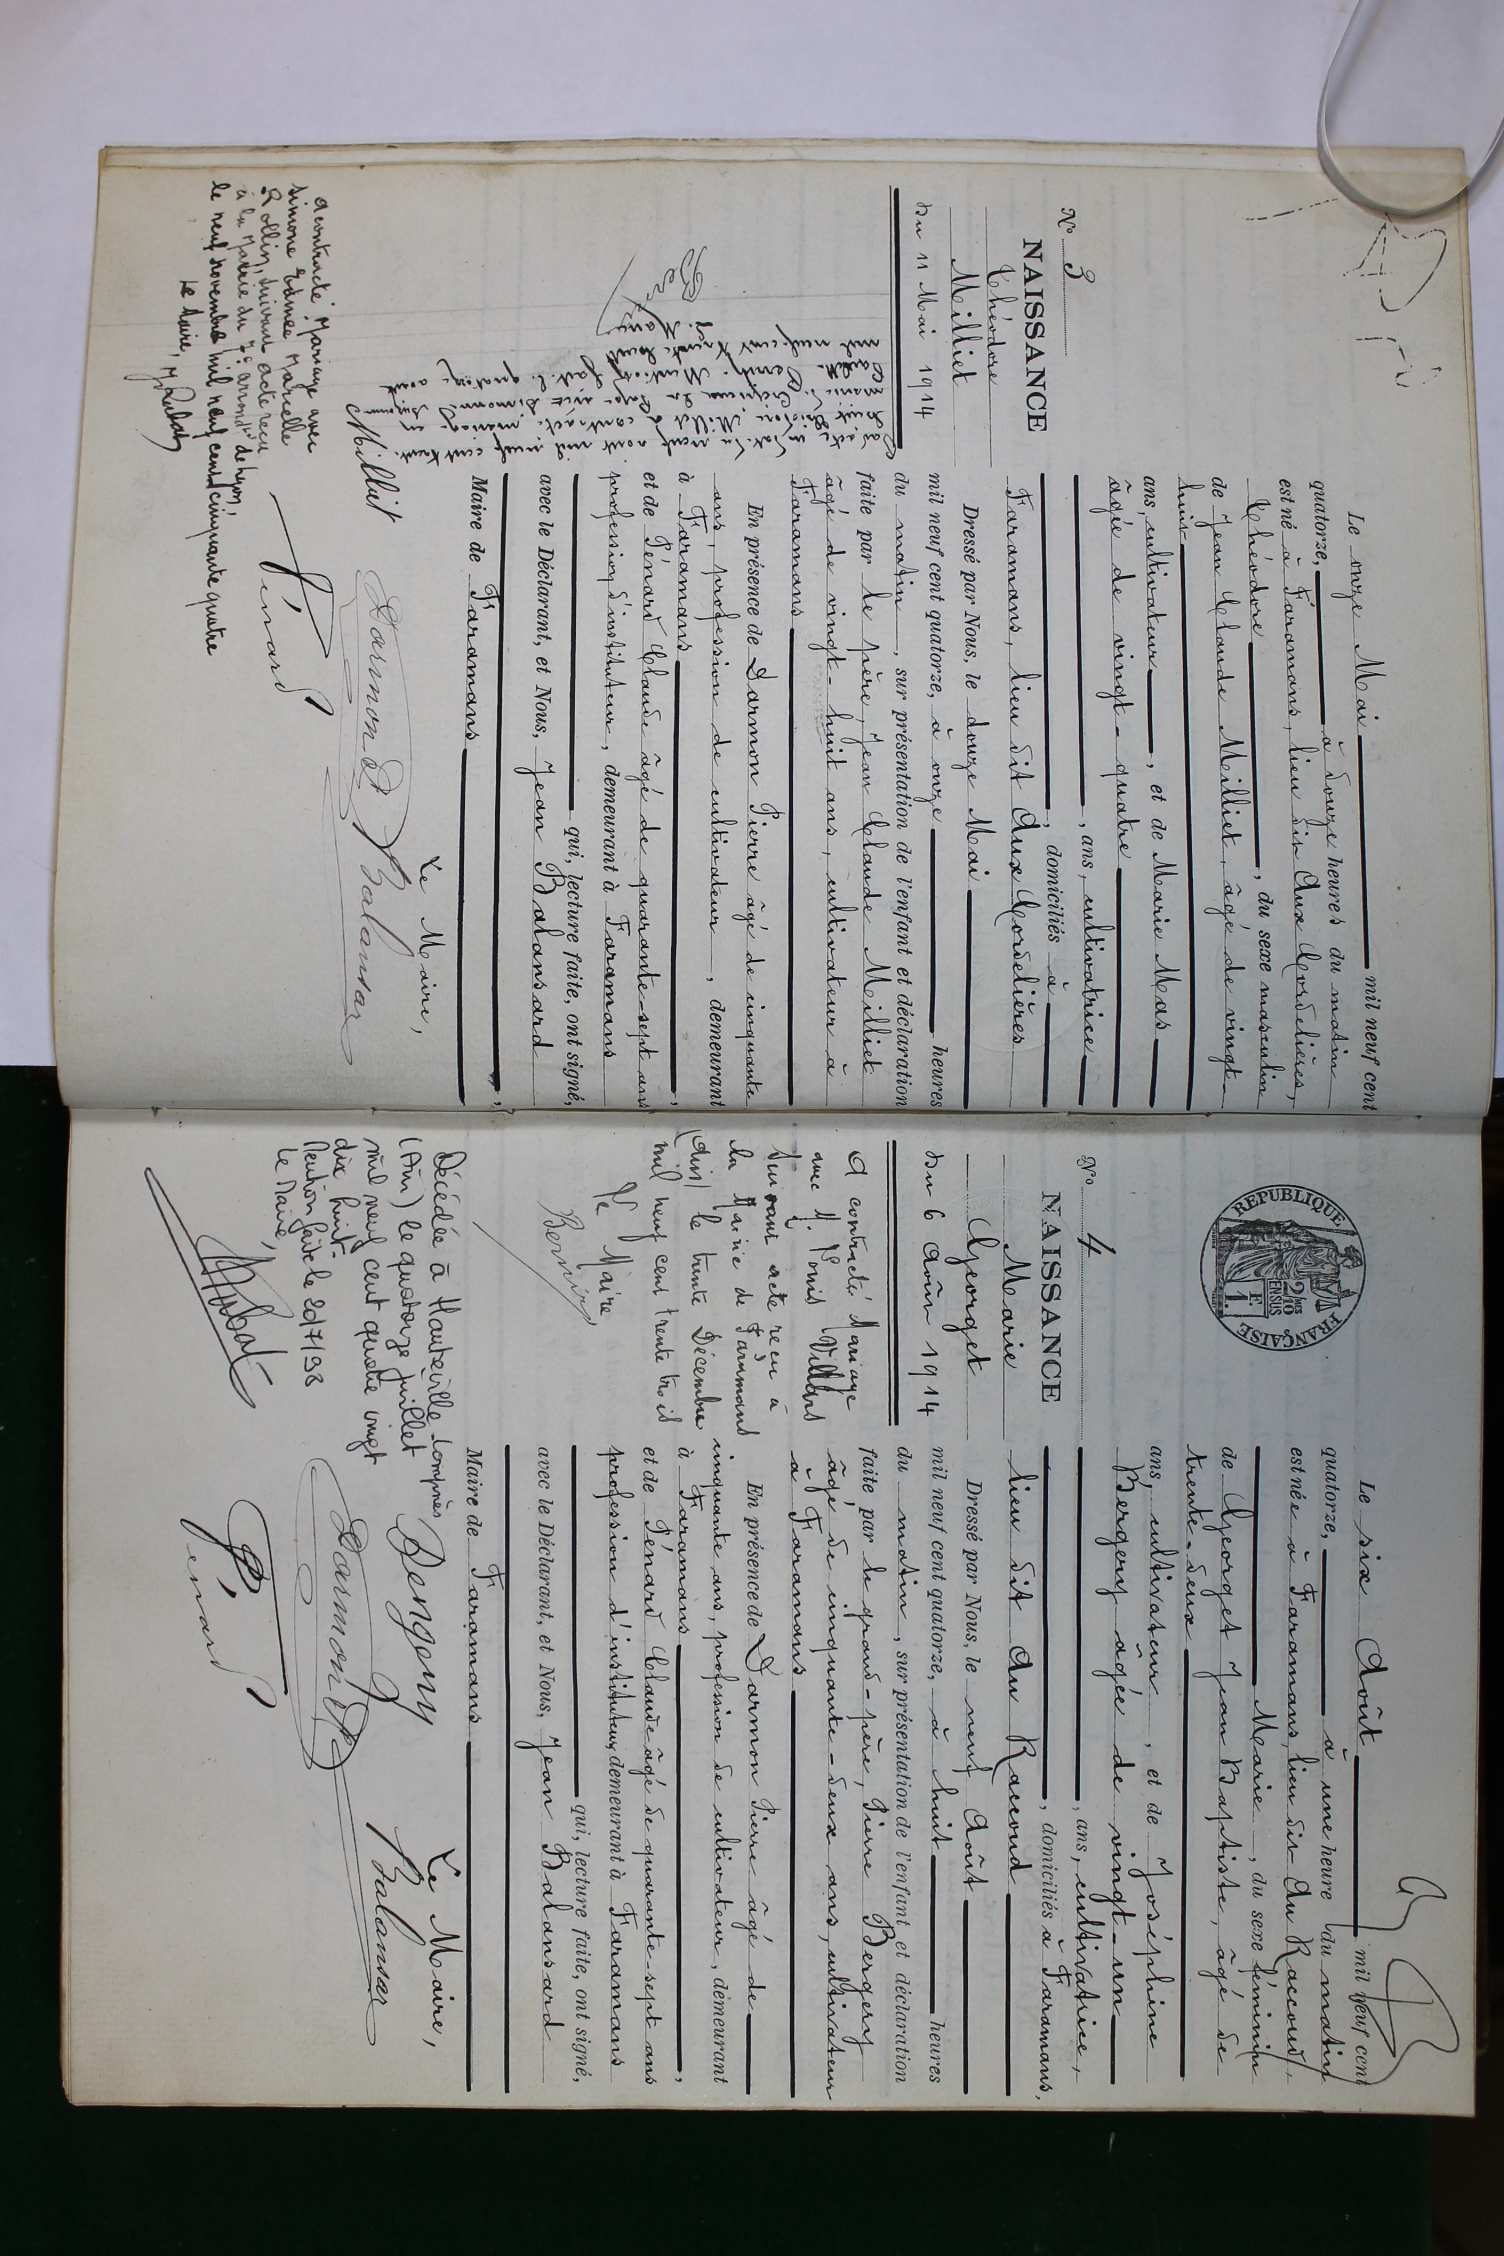 N° 3
NAISSANCE
Théodore
Milliet
Du 11 Mai 1914
Le onze Mai mil neuf cent
quatorze, à douze heures du matin
est né à Faramans, lieu dit Aux Cordelières,
Théodore, du sexe masculin
de Jean Claude Milliet, âgé de vingt-
huit
ans, cultivateur, et de Marie Mas
âgée de vingt-quatre
ans, cultivatrice
, domiciliés à
Faramans, lieu dit Aux Cordelières
Dressé par Nous, le douze Mai
mil neuf cent quatorze, à onze heures
du matin, sur présentation de l'enfant et déclaration
faite par le père, Jean Claude Milliet
âgé de vingt-huit ans, cultivateur à
Faramans
En présence de Darmon Pierre âgé de cinquante
ans, profession de cultivateur, demeurant
à Faramans,
et de Pénard Claude âgé de quarante-sept ans
profession d'instituteur, demeurant à Faramans
qui, lecture faite, ont signé,
avec le Déclarant, et Nous, Jean Balansard
Maire de Faramans
Le Maire,
Milliet
Darmon P
Balansar
Pénard
a contracté Mariage avec
Simone Edmée Marcelle
Rollin, suivant acte reçu
à la Mairie du 7e arrondt de Lyon
le neuf novembre mil neuf cent cinquante quatre
Le Maire,
N° 4
NAISSANCE
Marie
Georget
Du 6 Août 1914
REPUBLIQUE FRANÇAISE
2/10 EN SUS
1 F.
A contracté Mariage
avec M. Louis Villard
suivant acte reçu à
la Mairie de Faramans
(Ain) le trente Décembre
mil neuf cent trente trois
Le Maire
Décédée à Hauteville-Lompnès
(Ain) le quatorze juillet
mil neuf cent quatre vingt
dix huit.
Mention faite le 20/7/98
Le Maire,
Le six Août mil neuf cent
quatorze, à une heure du matin
est née à Faramans, lieu dit Au Raccoud,
Marie, du sexe féminin
de Georget Jean Baptiste, âgé de
trente-deux
ans, cultivateur, et de Joséphine
Bergery âgée de vingt-un
ans, cultivatrice,
, domiciliés à Faramans,
lieu dit Au Raccoud
Dressé par Nous, le neuf Août
mil neuf cent quatorze, à huit heures
du matin, sur présentation de l'enfant et déclaration
faite par le grand-père, Pierre Bergery
âgé de cinquante-deux ans, cultivateur
à Faramans
En présence de Darmon Pierre âgé de
cinquante ans, profession de cultivateur, demeurant
à Faramans,
et de Pénard Claude âgé de quarante-sept ans
profession d'instituteur, demeurant à Faramans
qui, lecture faite, ont signé,
avec le Déclarant, et Nous, Jean Balansard
Maire de Faramans
Le Maire,
Balansar
Darmon P
Pénard